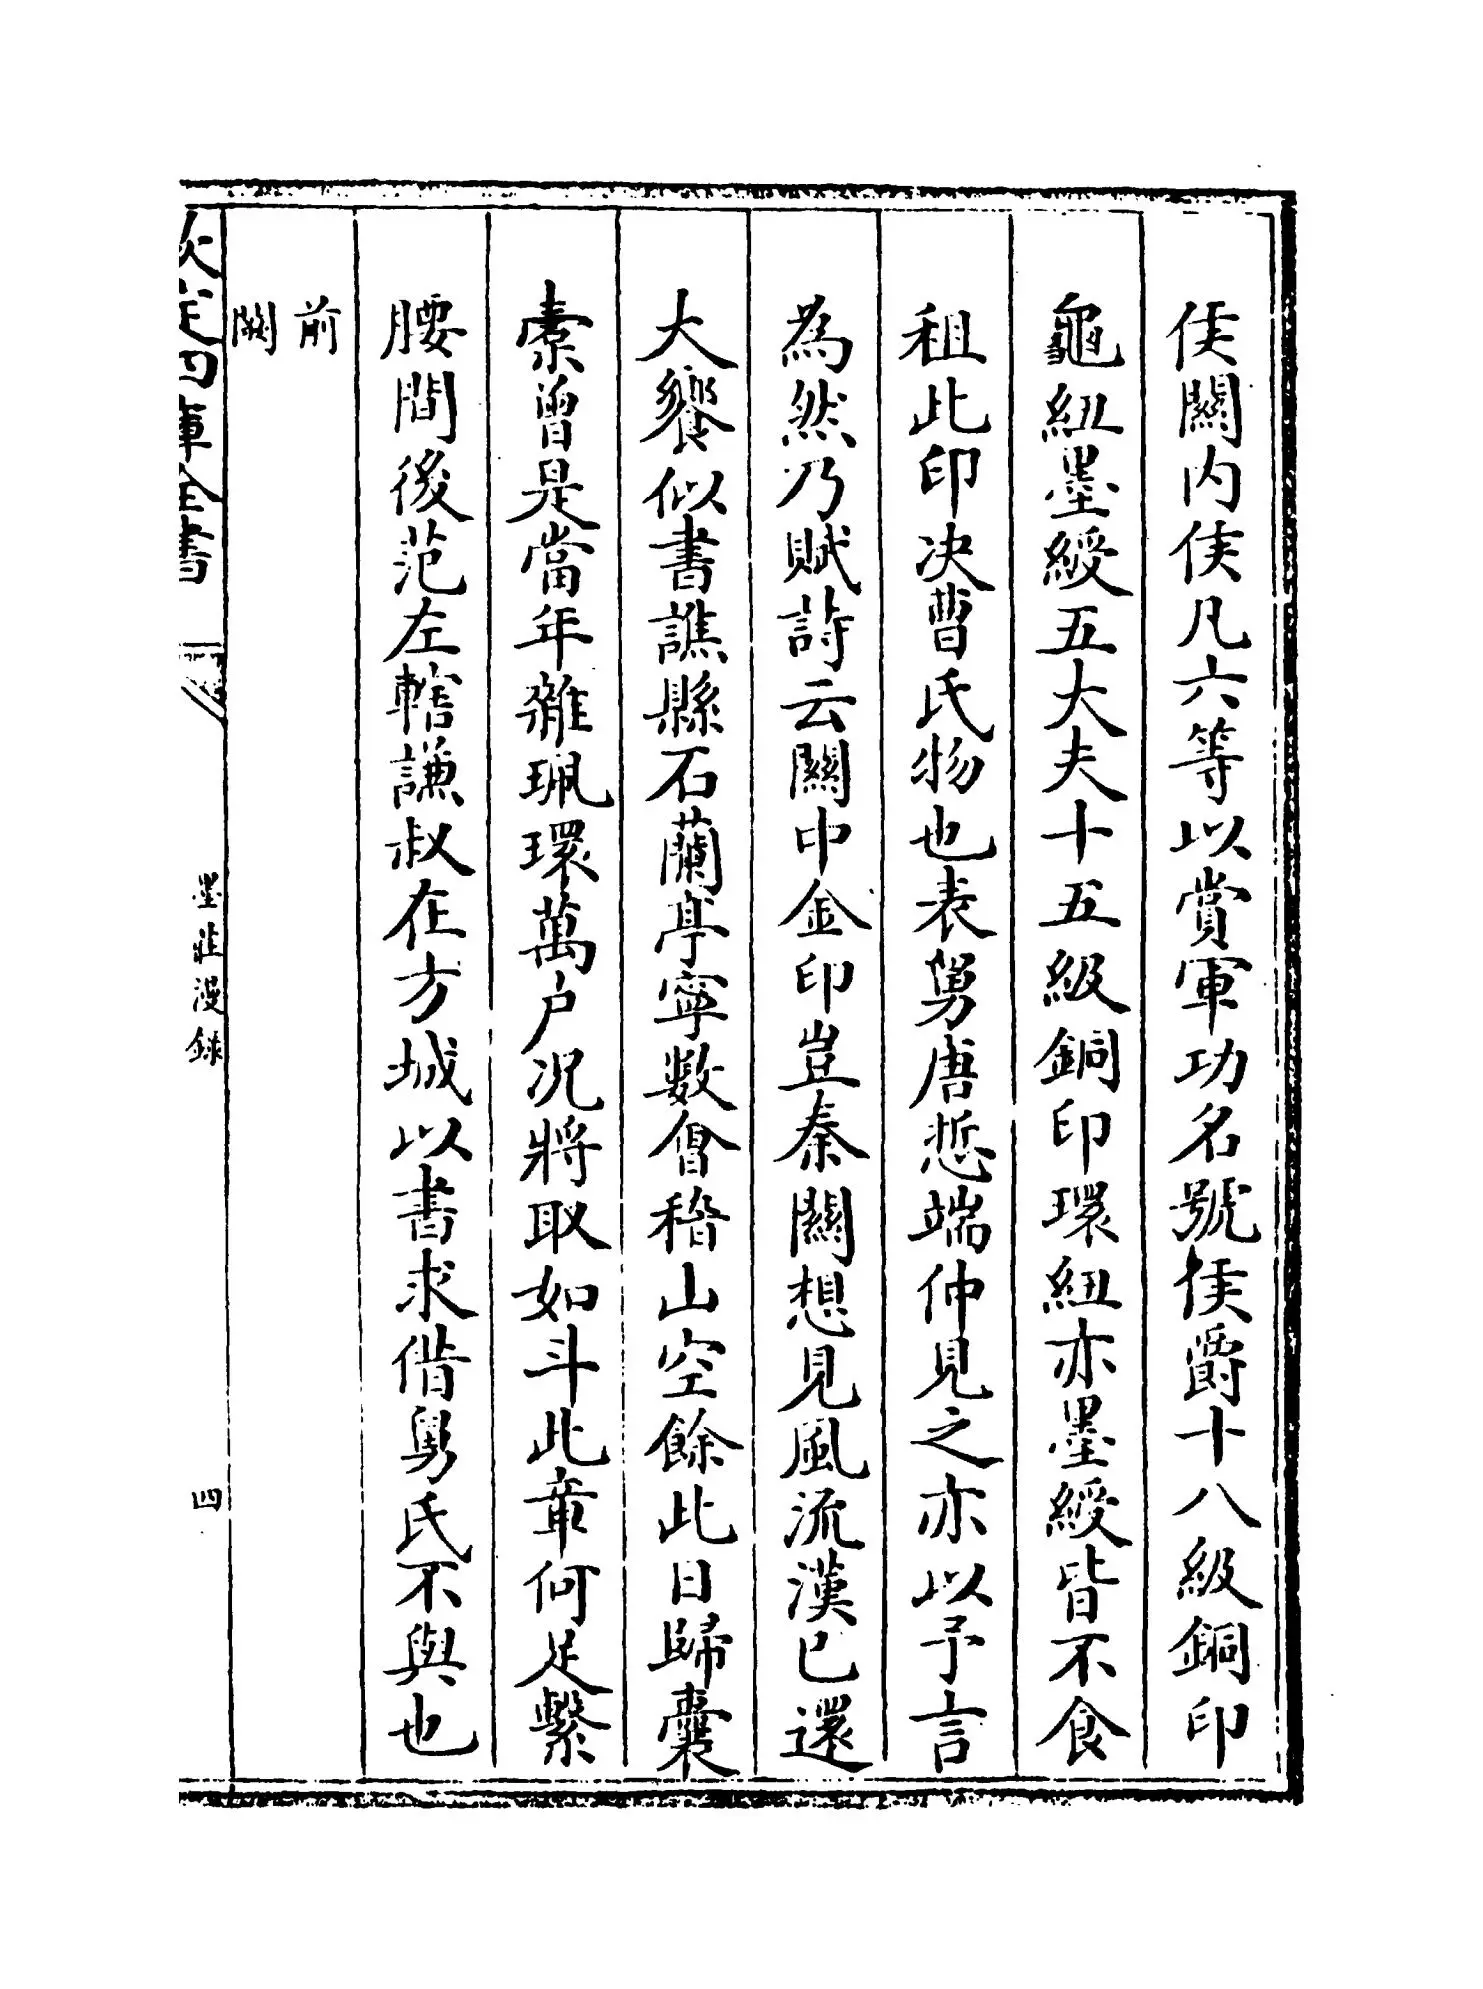 侯關内侯凡六等以賞軍功名號侯爵十八級銅印
龜紐墨綬五大夫十五級銅印環紐亦墨綬皆不食
租此印决曹氏物也表舅唐悊端仲見之亦以予言
為然乃賦詩云關中金印豈秦關想見風流漢已還
大饗似書譙縣石蘭亭寧數會稽山空餘此日歸囊
橐曾是當年雜珮環萬户况將取如斗此章何足繫
腰間後范左轄謙叔在方城以書求借舅氏不與也
前
闕
欽定四庫全書
墨莊漫録
四